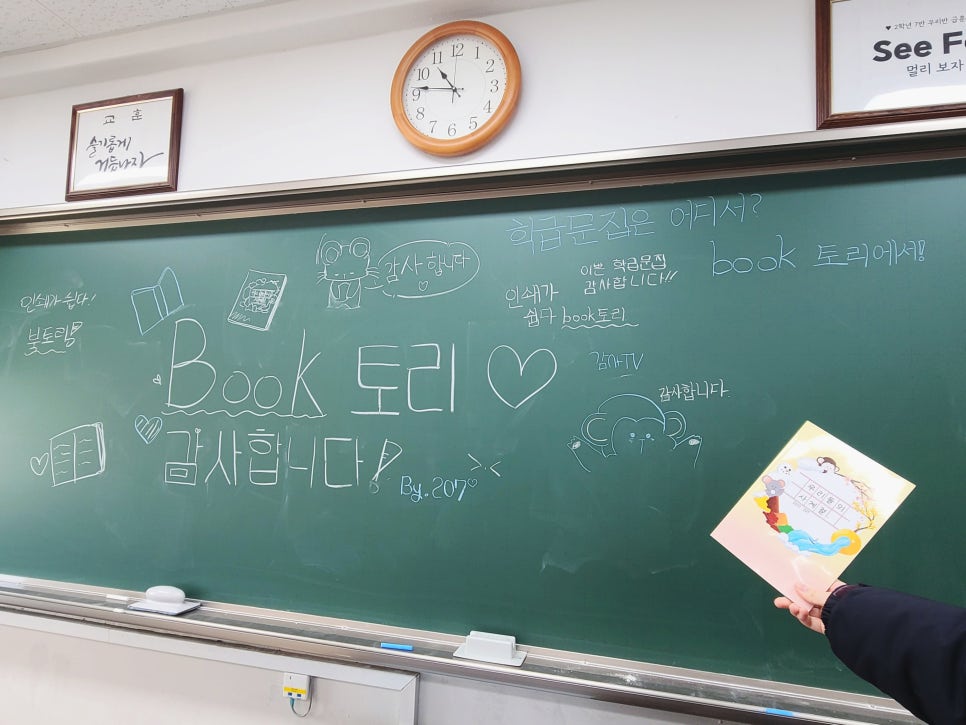 교 훈
슬기롭게
거듭나자
12 1 2 3 4 5 6 7 8 9 10 11
♥ 2학년 7반 우리반 급훈
See Fa
멀리 보자
학급문집은 어디서?
book 토리에서!
감사합니다
이번 학급문집
감사합니다!!
인쇄가
쉽다 book토리
인쇄가 쉽다!
북토리!
Book 토리
감사합니다!
By.207
감사TV
감사합니다.
우리들의
사계절